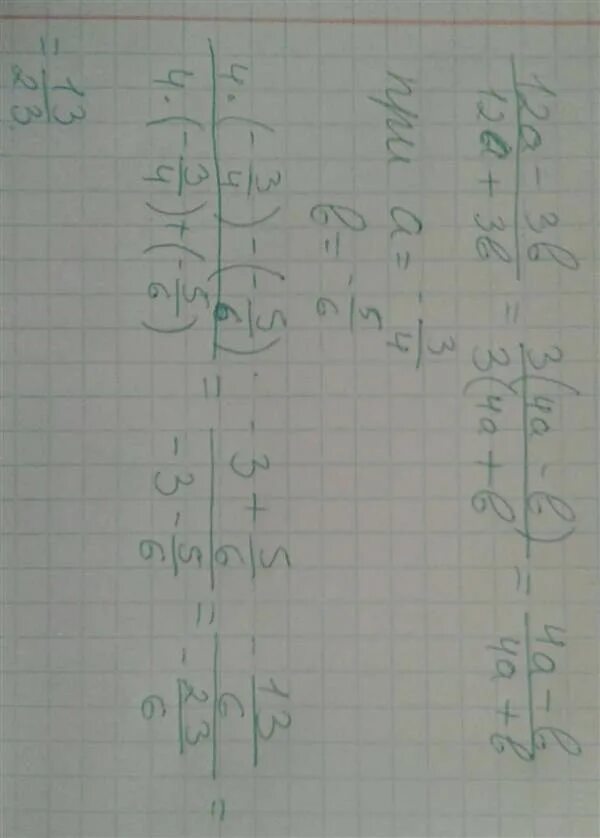 12a - 3b / 12a + 3b = 3(4a - b) / 3(4a + b) = 4a - b / 4a + b
при a = - 3/4
b = - 5/6
4·(-3/4) - (-5/6) / 4·(-3/4) + (-5/6) = -3 + 5/6 / -3 - 5/6 = - 13/6 / - 23/6 =
= 13/23